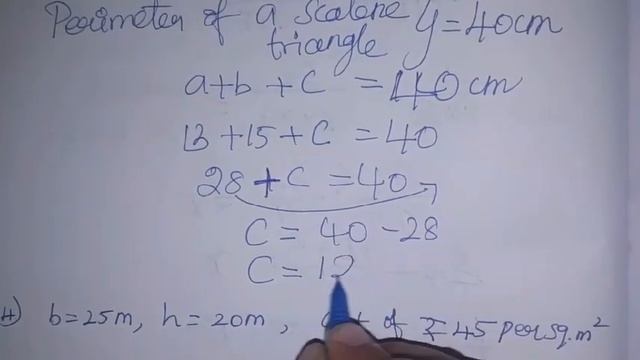 Perimeter of a scalene
triangle y = 40cm
a+b+c = 40 cm
13+15+c = 40
28+c = 40
c = 40-28
c = 12
4) b=25m, h=20m, of ₹45 per sq.m²